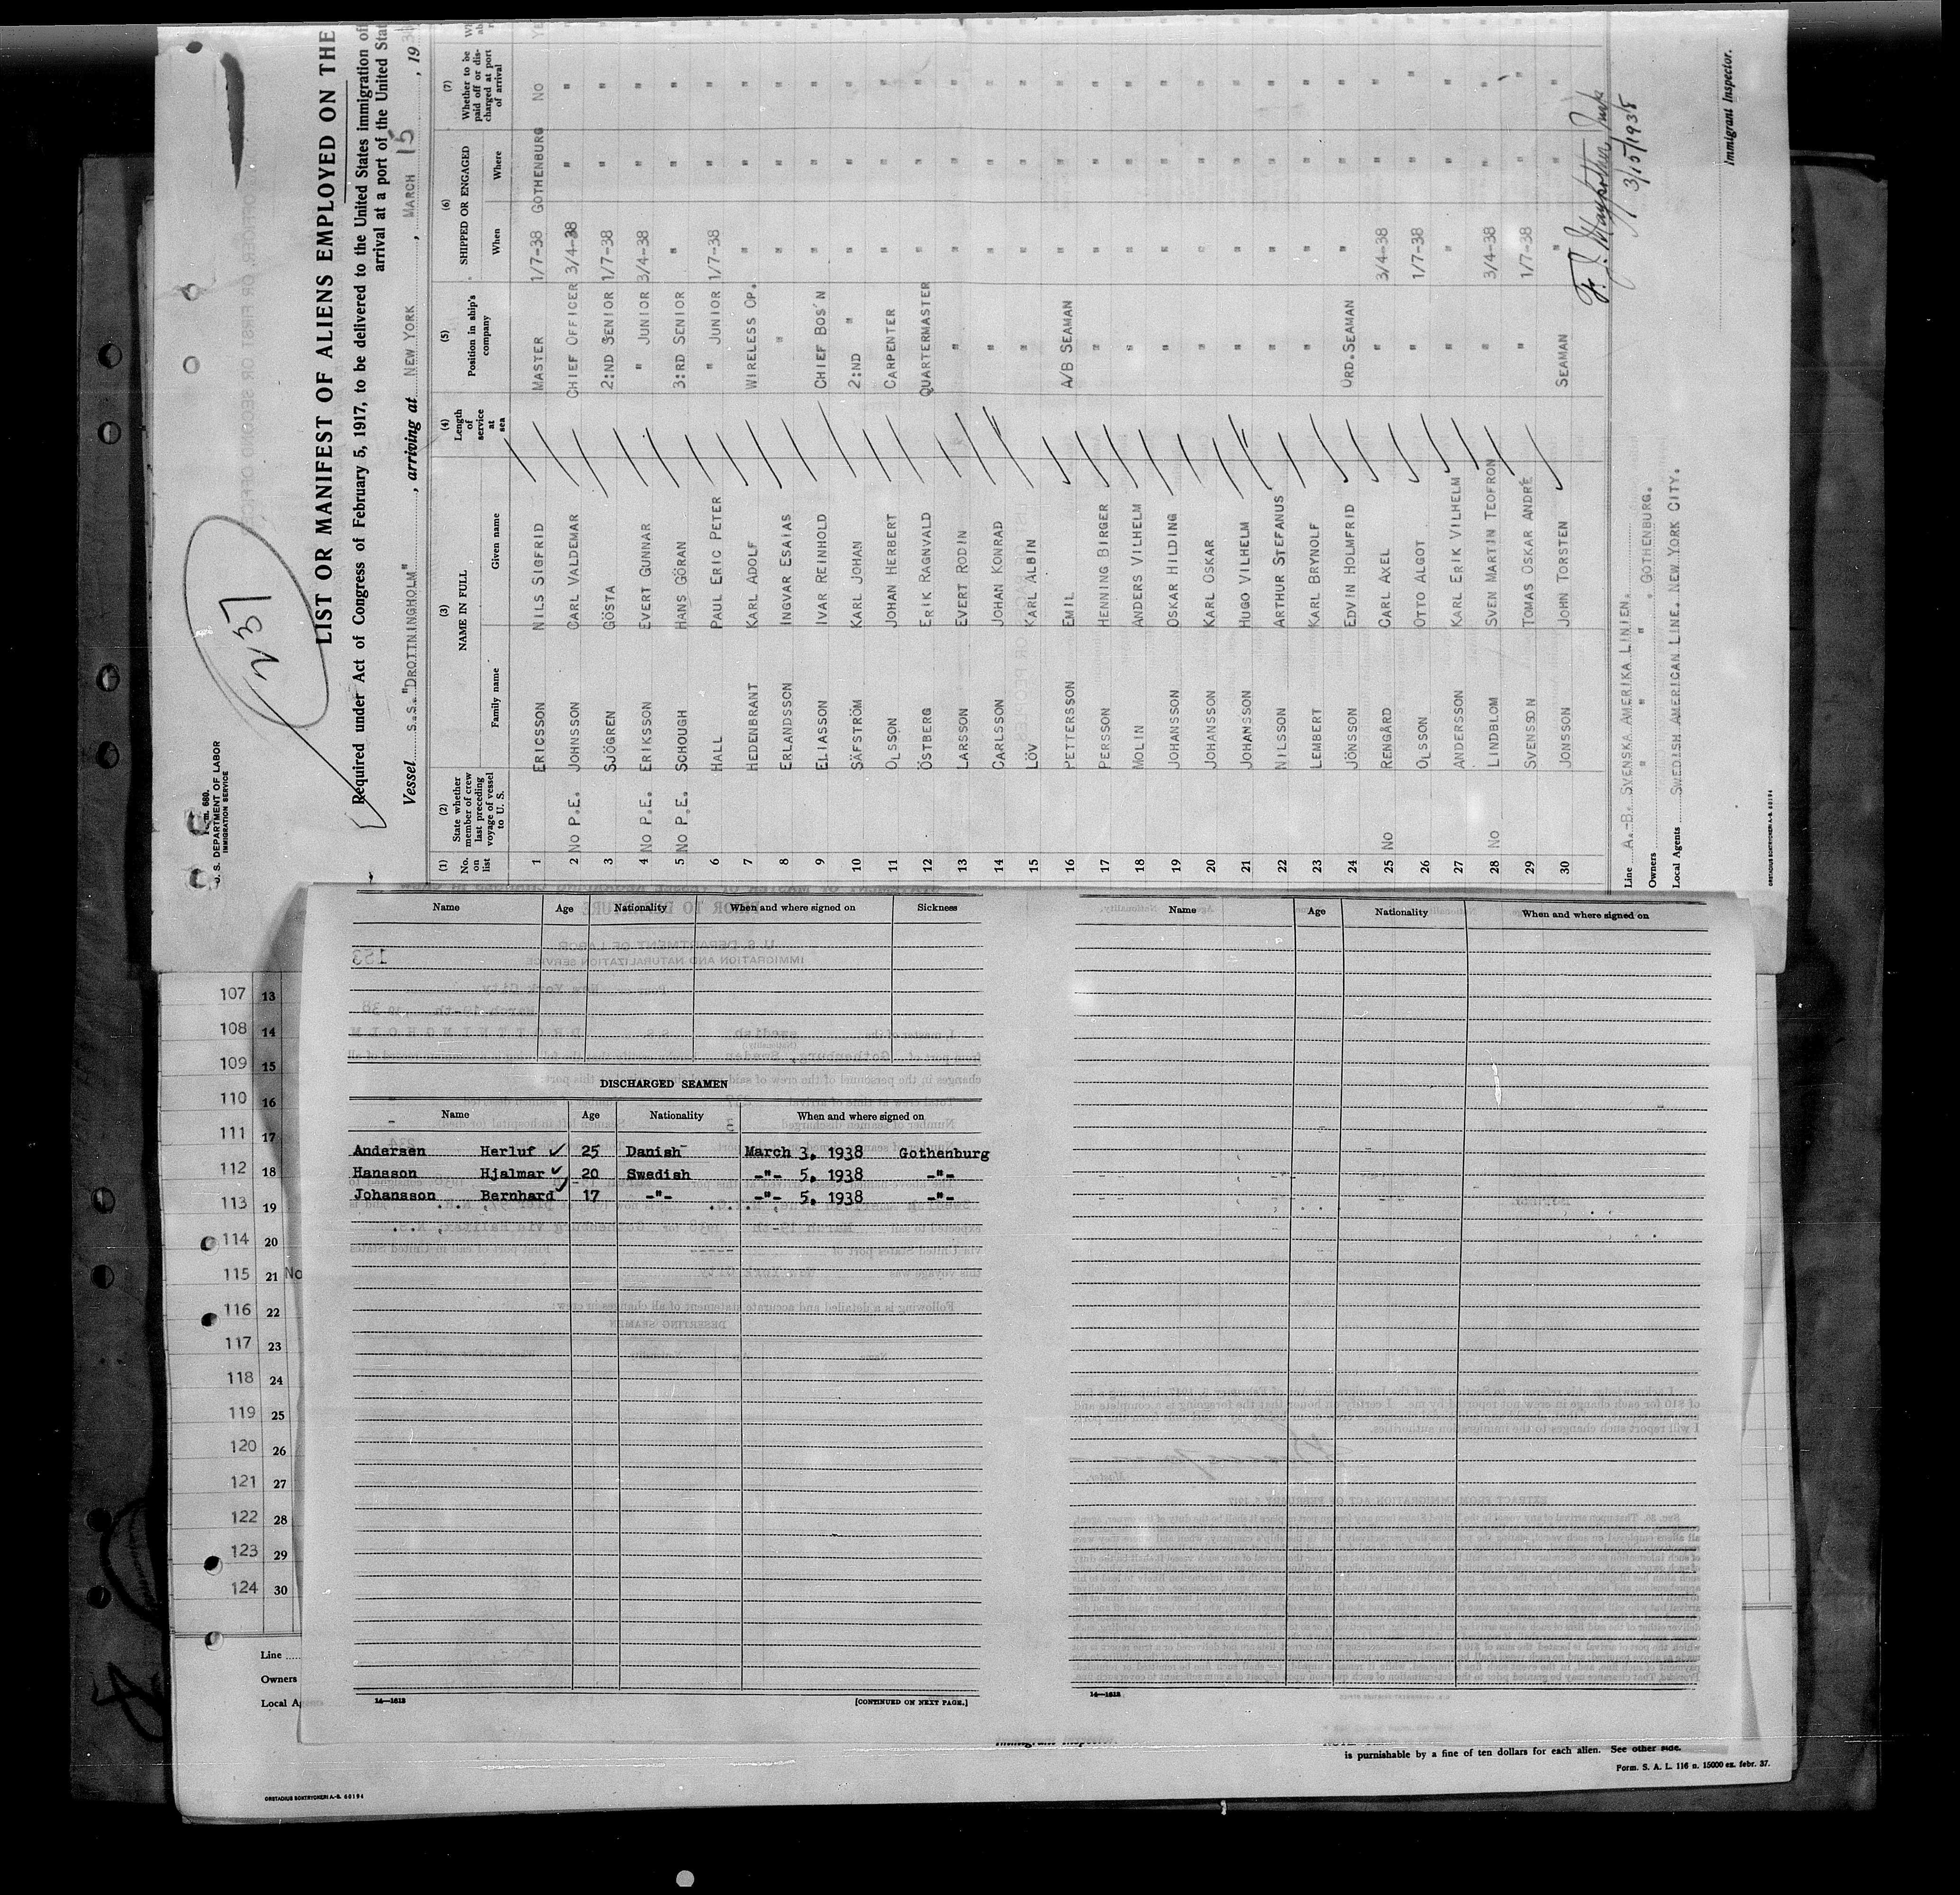 Form 680.
U. S. DEPARTMENT OF LABOR
IMMIGRATION SERVICE
237
LIST OR MANIFEST OF ALIENS EMPLOYED ON THE
Required under Act of Congress of February 5, 1917, to be delivered to the United States immigration of
arrival at a port of the United Stat
Vessel S.S. "DROTTNINGHOLM", arriving at NEW YORK, MARCH 15, 1938
(1) No. on list (2) State whether member of crew last preceding voyage of vessel to U. S. (3) NAME IN FULL Family name Given name (4) Length of service at sea (5) Position in ship's company (6) SHIPPED OR ENGAGED When Where (7) Whether to be paid off or discharged at port of arrival
1 ERICSSON NILS SIGFRID MASTER 1/7-38 GOTHENBURG NO YE
2 NO P.E. JOHNSSON CARL VALDEMAR CHIEF OFFICER 3/4-38 " "
3 SJÖGREN GÖSTA 2:ND SENIOR 1/7-38 " "
4 NO P.E. ERIKSSON EVERT GUNNAR " JUNIOR 3/4-38 " "
5 NO P.E. SCHOUGH HANS GÖRAN 3:RD SENIOR " " "
6 HALL PAUL ERIC PETER " JUNIOR 1/7-38 " "
7 HEDENBRANT KARL ADOLF WIRELESS OP. " " "
8 ERLANDSSON INGVAR ESAIAS " " " "
9 ELIASSON IVAR REINHOLD CHIEF BOS'N " " "
10 SÄFSTRÖM KARL JOHAN 2:ND " " " "
11 OLSSON JOHAN HERBERT CARPENTER " " "
12 ÖSTBERG ERIK RAGNVALD QUARTERMASTER " " "
13 LARSSON EVERT RODIN " " " "
14 CARLSSON JOHAN KONRAD " " " "
15 LÖV KARL ALBIN " " " "
16 PETTERSSON EMIL A/B SEAMAN " " "
17 PERSSON HENNING BIRGER " " " "
18 MOLIN ANDERS VILHELM " " " "
19 JOHANSSON OSKAR HILDING " " " "
20 JOHANSSON KARL OSKAR " " " "
21 JOHANSSON HUGO VILHELM " " " "
22 NILSSON ARTHUR STEFANUS " " " "
23 LEMBERT KARL BRYNOLF " " " "
24 JÖNSSON EDVIN HOLMFRID ORD.SEAMAN " " "
25 NO RENGÅRD CARL AXEL " 3/4-38 " "
26 OLSSON OTTO ALGOT " 1/7-38 " "
27 ANDERSSON KARL ERIK VILHELM " " " "
28 NO LINDBLOM SVEN MARTIN TEOFRON " 3/4-38 " "
29 SVENSSON TOMAS OSKAR ANDRÉ " 1/7-38 " "
30 JONSSON JOHN TORSTEN SEAMAN " "
3/15/1938
Line A.-B. SVENSKA AMERIKA LINIEN.
Owners " " " , GOTHENBURG.
Local Agents SWEDISH AMERICAN LINE. NEW YORK CITY.
Immigrant Inspector.
Name Age Nationality When and where signed on Sickness
DISCHARGED SEAMEN
Name Age Nationality When and where signed on
Andersen Herluf ✓ 25 Danish March 3, 1938 Gothenburg
Hansson Hjalmar ✓ 20 Swedish -"- 5, 1938 -"-
Johansson Bernhard ✓ 17 -"- -"- 5, 1938 -"-
14—1613
[CONTINUED ON NEXT PAGE.]
Name Age Nationality When and where signed on
14—1613
107 13
108 14
109 15
110 16
111 17
112 18
113 19
114 20
115 21 No
116 22
117 23
118 24
119 25
120 26
121 27
122 28
123 29
124 30
Line
Owners
Local A
Immigrant Inspector.
is punishable by a fine of ten dollars for each alien. See other side.
Form. S. A. L. 116 n. 15000 ex. febr. 37.